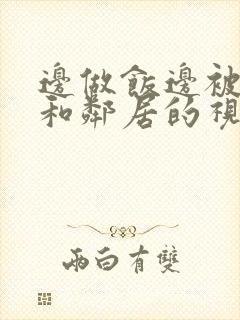 邊做飯邊被
和鄰居的視
兩白有雙